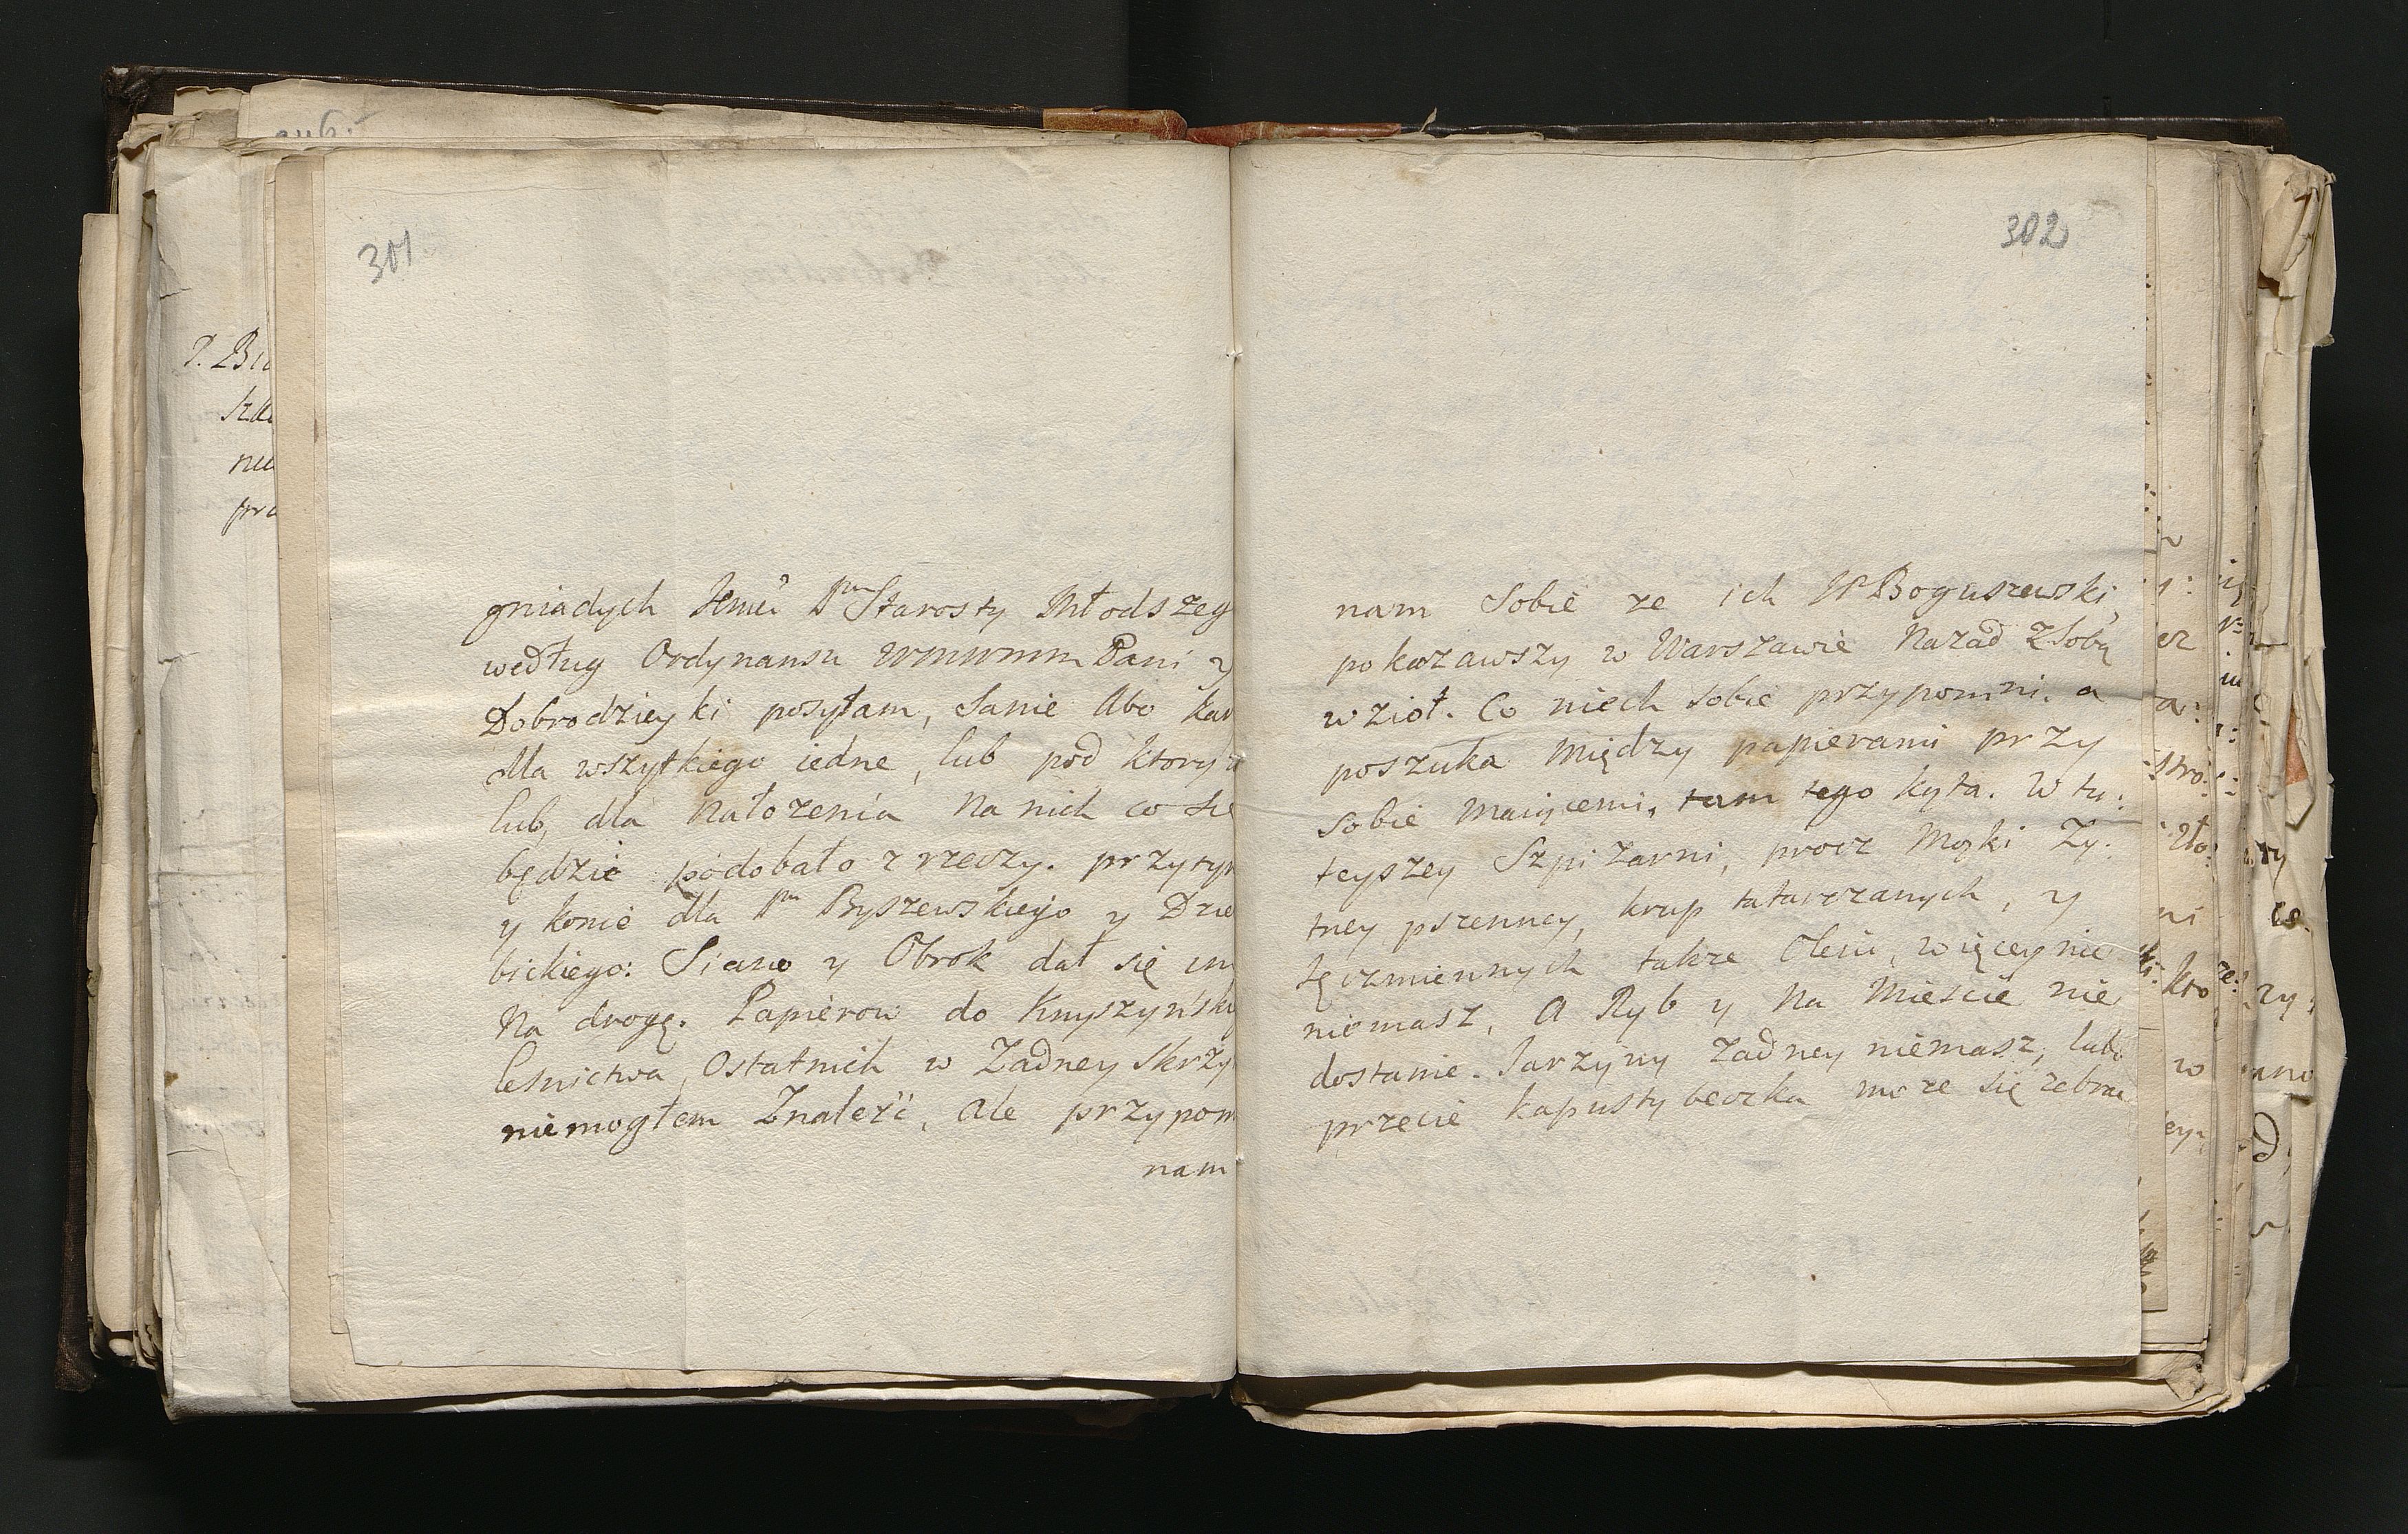 301
gniadych Jmci Pna Starosty Młodszeg
według Ordynansu WMWMM Pani y
Dobrodzieyki posyłam, Sanie Abo kar
dla wszytkiego iedne, lub pod ktory
lub, dla Nałozenia Na nich co Sie
będzie podobało z rzeczy. przytym
y konie dla Pna Byszewskiego y Dzie
bickiego: Siano y Obrok dał się im
Na drogę. Papierow do Knyszyńskie
lesnictwa, Ostatnich w Zadney Skrzy
niemogłem Znaleźć, Ale przypom
nam
302
nam Sobie ze ich JP Boguszewski,
pokazawszy w Warszawie Nazad ZSobą
wzioł. Co niech Sobie przypomni. a
poszuka Między papierami przy
Sobie Maiącemi, tam tego kyta. W tu:
teyszey Szpizarni, procz Mąki Zy:
tney pszenney, krup tatarczanych, y
Jęczmiennych takze Oleiu, więcey nic
niemasz, A Ryb y Na Miescie nie
dostanie. Jarzyny Zadney niemasz, lubo
przecie kapusty beczka moze się zebra
P. Bie
nie
pra